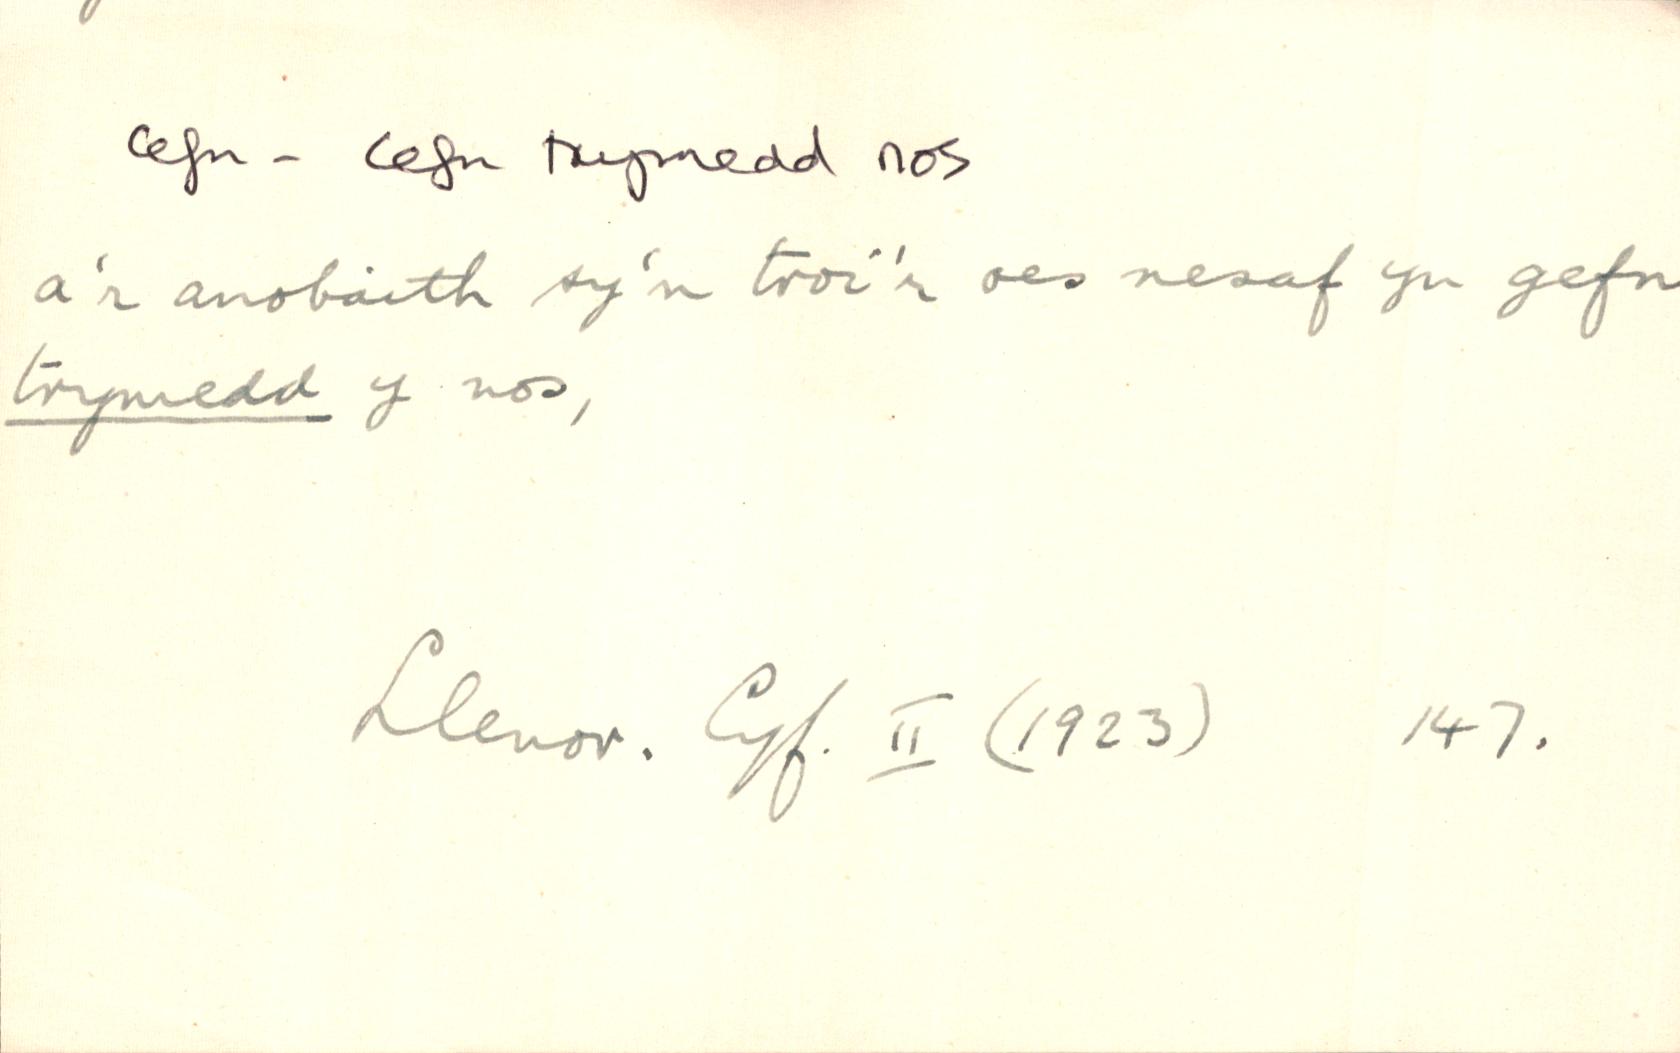 cefn - cefn trymedd nos
a'r anobaith sy'n troi'r oes nesaf yn gefn
trymedd y nos,
Llenor. Cyf. II (1923) 147.